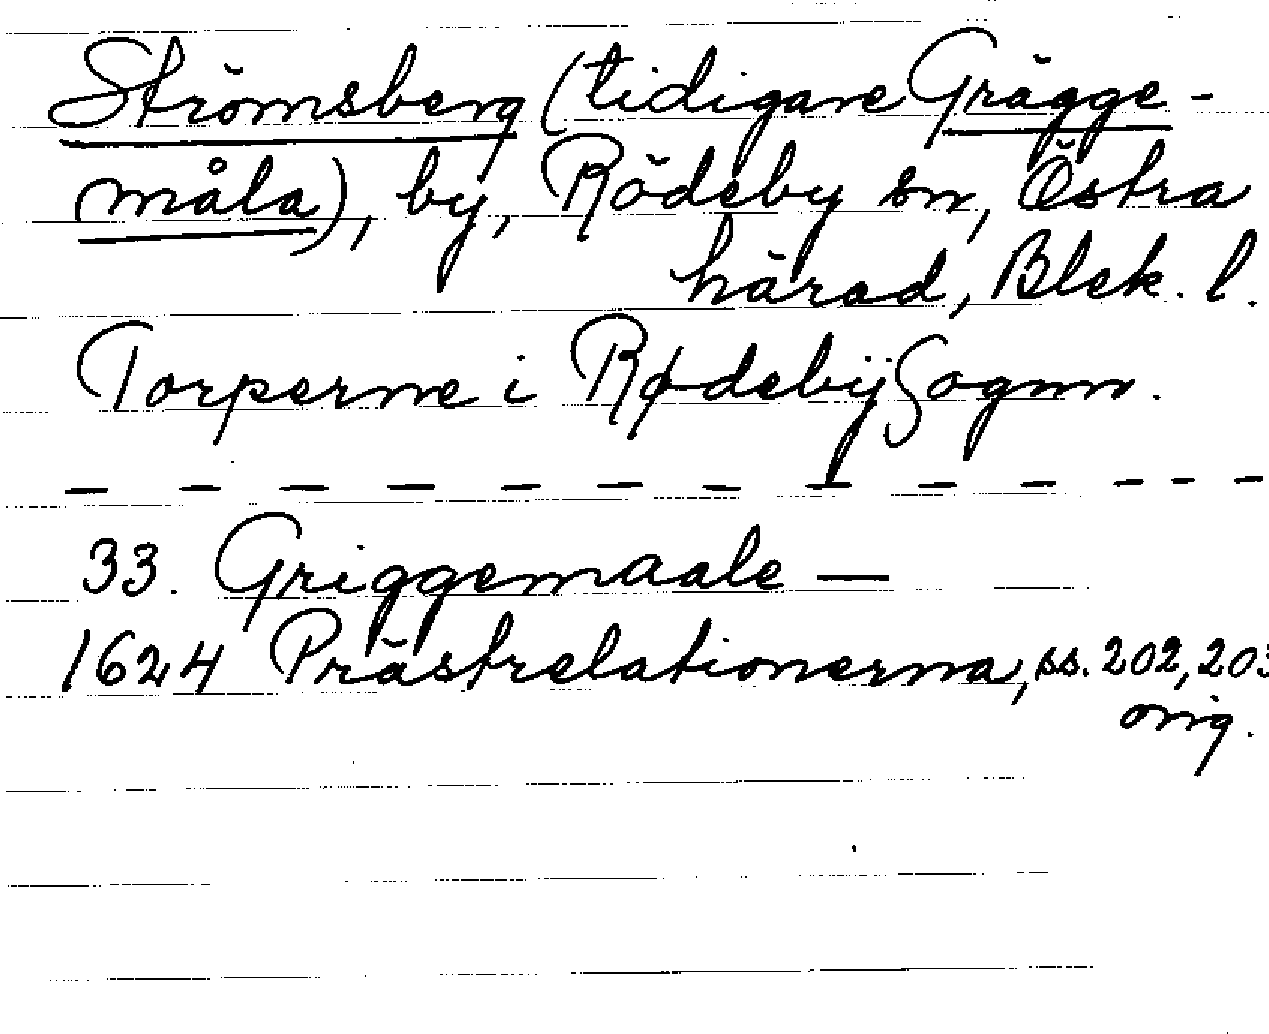 Strömsberg (tidigare Grägge-
måla), by, Rödeby sn, Östra
härad, Blek. l.
Torperne i Rødebÿ Sognn.
— — — — — — — — — — — —
33. Griggemaale —
1624 Prästrelationerna, ss. 202, 203
orig.